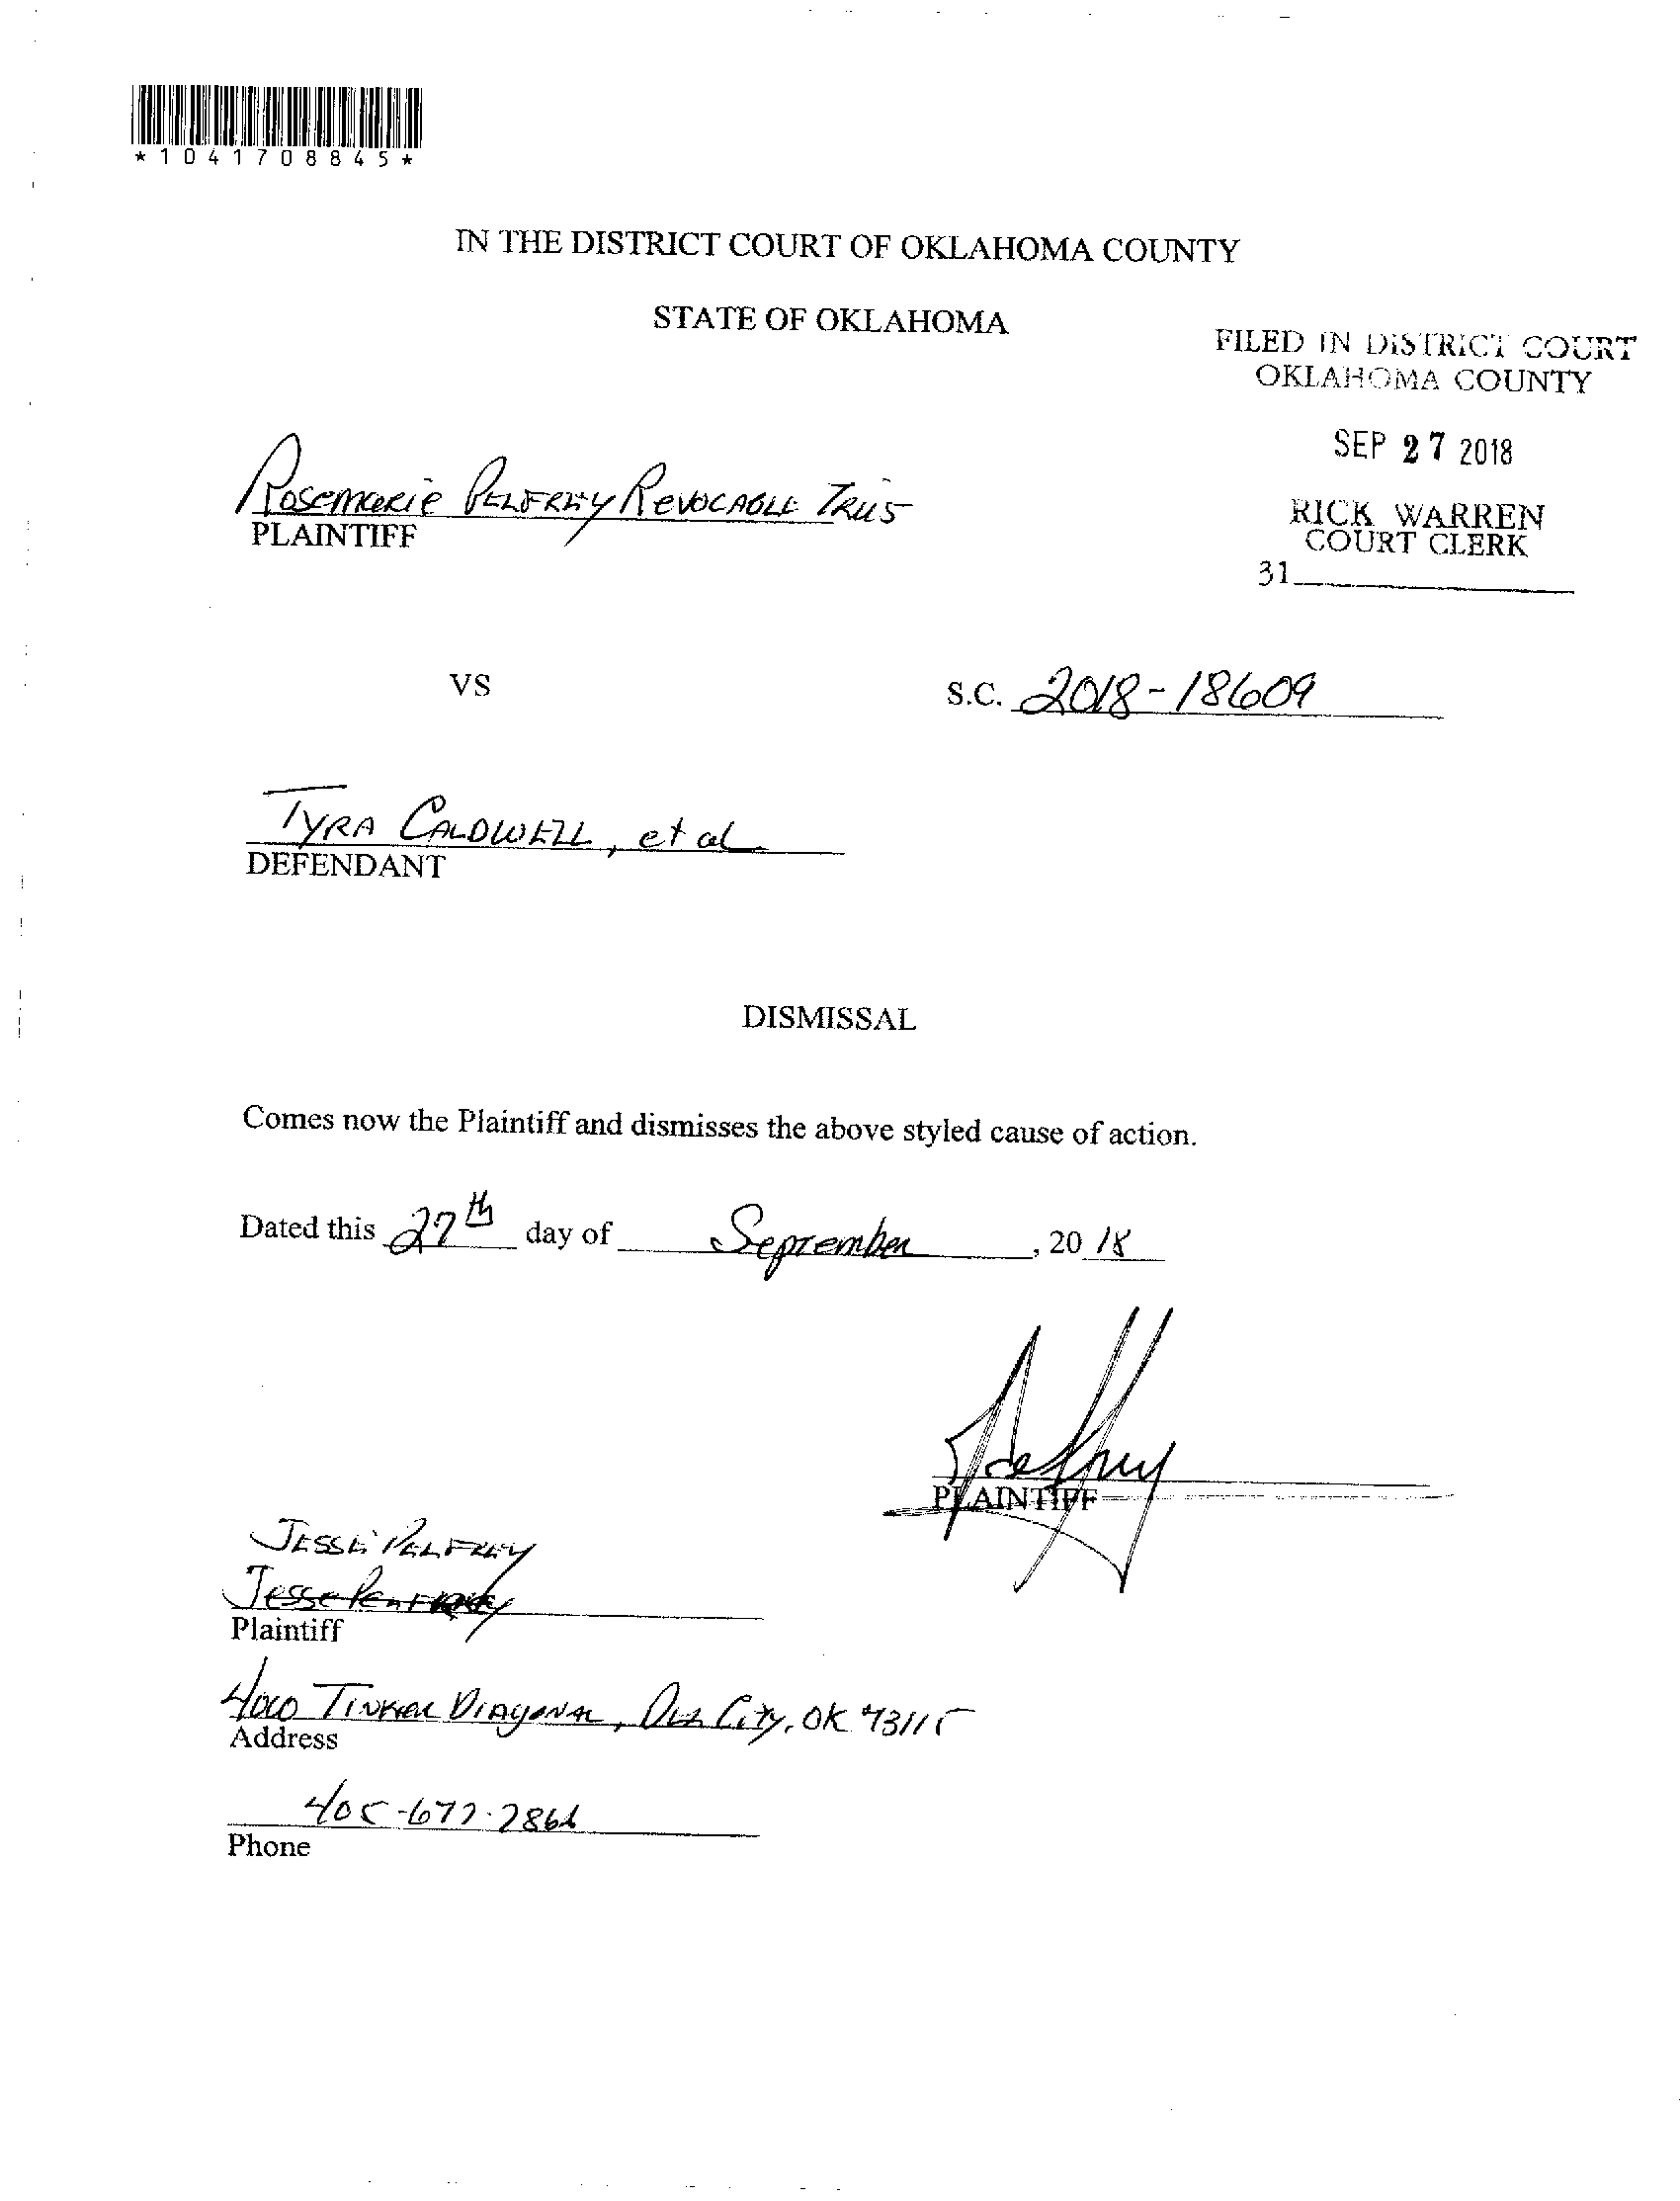 *1041708845*
IN THE DISTRICT COURT OF OKLAHOMA COUNTY
STATE OF OKLAHOMA
FILED IN DISTRICT COURT
OKLAHOMA COUNTY
SEP 27 2018
RICK WARREN
COURT CLERK
31
Rosemarie PELFREY Revocable Trus
PLAINTIFF
VS
S.C. 2018-18609
TYRA CALDWELL, et al
DEFENDANT
DISMISSAL
Comes now the Plaintiff and dismisses the above styled cause of action.
Dated this 27th day of September, 20 18
PLAINTIFF
JESSE PELFREY
Jesse
Plaintiff
4000 TINKER DIAGONAL, City, OK 73115
Address
405-677-
Phone